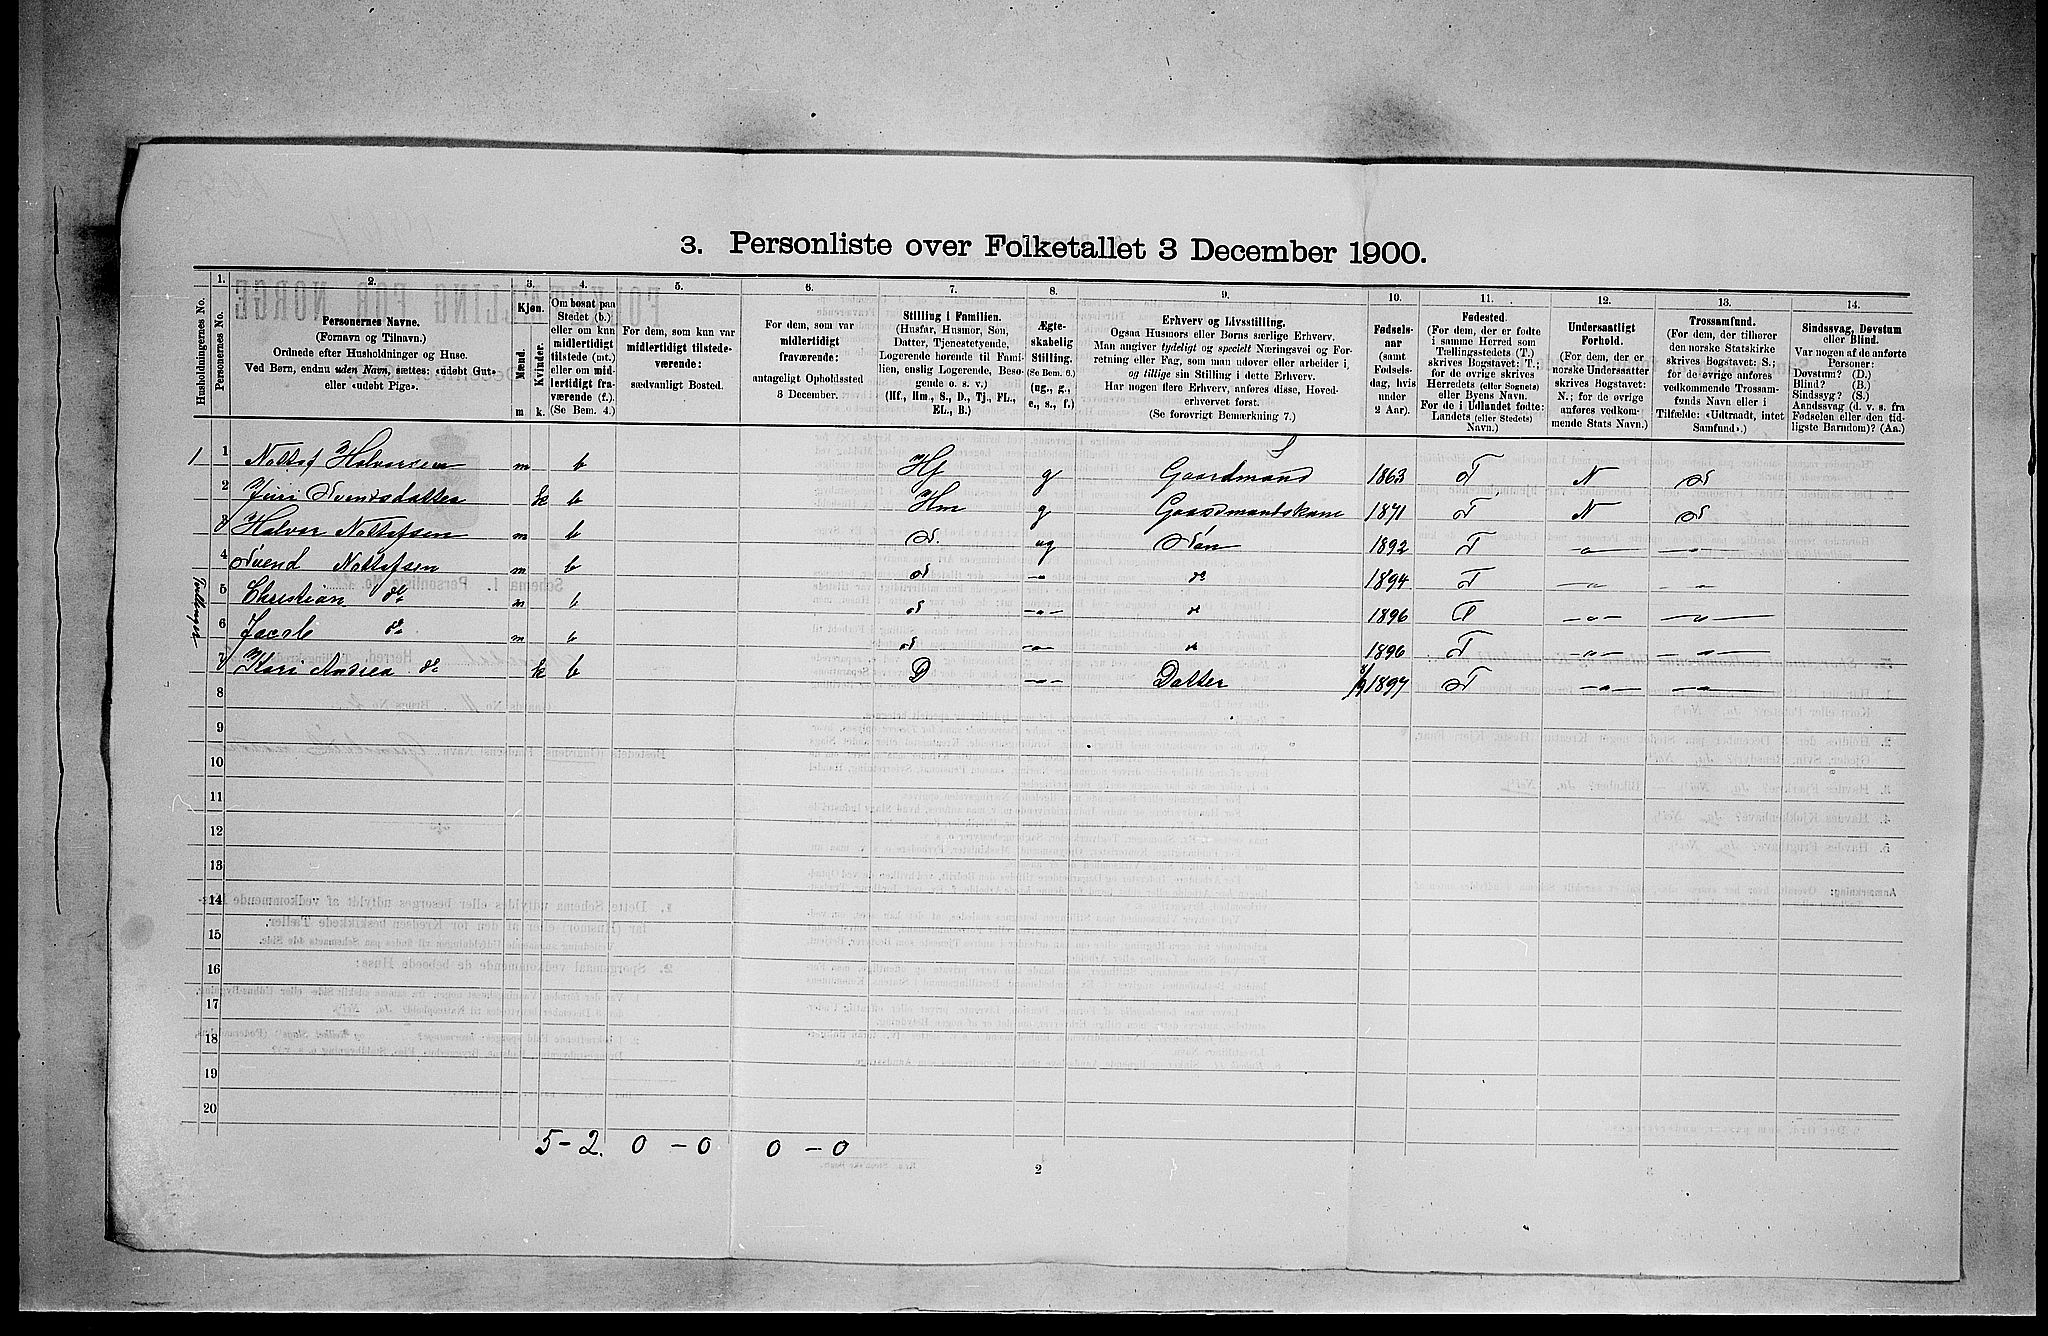 3. Personliste over Folketallet 3 December 1900.
1. 2. 3. 4. 5. 6. 7. 8. 9. 10. 11. 12. 13. 14.
Husholdningernes No.
Personernes No.
Personernes Navne.
(Fornavn og Tilnavn.)
Ordnede efter Husholdninger og Huse.
Ved Børn, endnu uden Navn, sættes: «udøbt Gut»
eller «udøbt Pige».
Kjøn.
Mænd. Kvinder.
m k.
Om bosat paa
Stedet (b.)
eller om kun
midlertidigt
tilstede (mt.)
eller om mid-
lertidigt fra-
værende (f.).
(Se Bem. 4.)
For dem, som kun var
midlertidigt tilstede-
værende:
sædvanligt Bosted.
For dem, som var
midlertidigt
fraværende:
antageligt Opholdssted
3 December.
Stilling i Familien.
(Husfar, Husmor, Søn,
Datter, Tjenestetyende,
Logerende hørende til Fami-
lien, enslig Logerende, Besø-
gende o. s. v.)
(Hf., Hm., S., D., Tj., FL.,
EL., B.)
Ægte-
skabelig
Stilling.
(Se Bem. 6.)
(ug., g.,
e., s., f.)
Erhverv og Livsstilling.
Ogsaa Husmors eller Børns særlige Erhverv.
Man angiver tydeligt og specielt Næringsvei og For-
retning eller Fag, som man udøver eller arbeider i,
og tillige sin Stilling i dette Erhverv.
Har nogen flere Erhverv, anføres disse, Hoved-
erhvervet først.
(Se forøvrigt Bemærkning 7.)
Fødsels-
aar
(samt
Fødsels-
dag, hvis
under
2 Aar).
Fødested.
(For dem, der er fødte
i samme Herred som
Tællingsstedets (T.)
skrives Bogstavet: T.;
for de øvrige skrives
Herredets (eller Sognets)
eller Byens Navn.
For de i Udlandet fødte:
Landets (eller Stedets)
Navn.)
Undersaatligt
Forhold.
(For dem, der er
norske Undersaatter
skrives Bogstavet:
N.; for de øvrige
anføres vedkom-
mende Stats Navn.)
Trossamfund.
(For dem, der tilhører
den norske Statskirke
skrives Bogstavet: S.;
for de øvrige anføres
vedkommende Trossam-
funds Navn eller i
Tilfælde: «Udtraadt, intet
Samfund».)
Sindssvag, Døvstum
eller Blind.
Var nogen af de anførte
Personer:
Døvstum? (D.)
Blind? (B.)
Sindssyg? (S.)
Aandssvag (d. v. s. fra
Fødselen eller den tid-
ligste Barndom)? (Aa.)
1 1 Nottof Halvorsen m b Hf g Gaardmand 1863 T N S
2 Juri Svensdatter k b Hm g Gaardmandskone 1871 T N S
3 Halvor Nottofsen m b S. ug Søn 1892 T —„— —„—
4 Svend Nottofsen m b S —„— do 1894 T —„— —„—
5 Christian do m b S —„— do 1896 T —„— —„—
6 Jacob do m b S —„— do 1896 T —„— —„—
7 Kari Andrea do k b D —„— Datter 1897 T —„— —„—
Tvillinger
8
9
10
11
12
13
14
15
16
17
18
19
20
5-2. 0-0 0-0
2